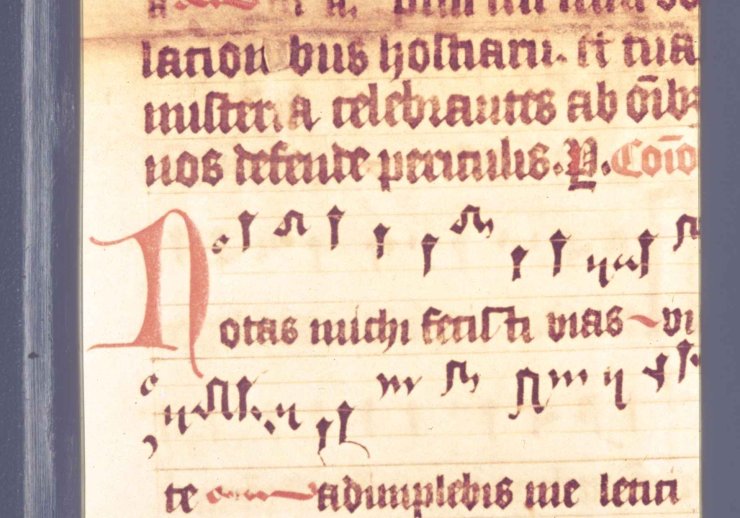 lacion bus hostiaru. et tua
misteria celebrantes ab oībs
nos defende periculis. P. Coīo
Notas michi fecisti vias vi
te adimplebis me letici